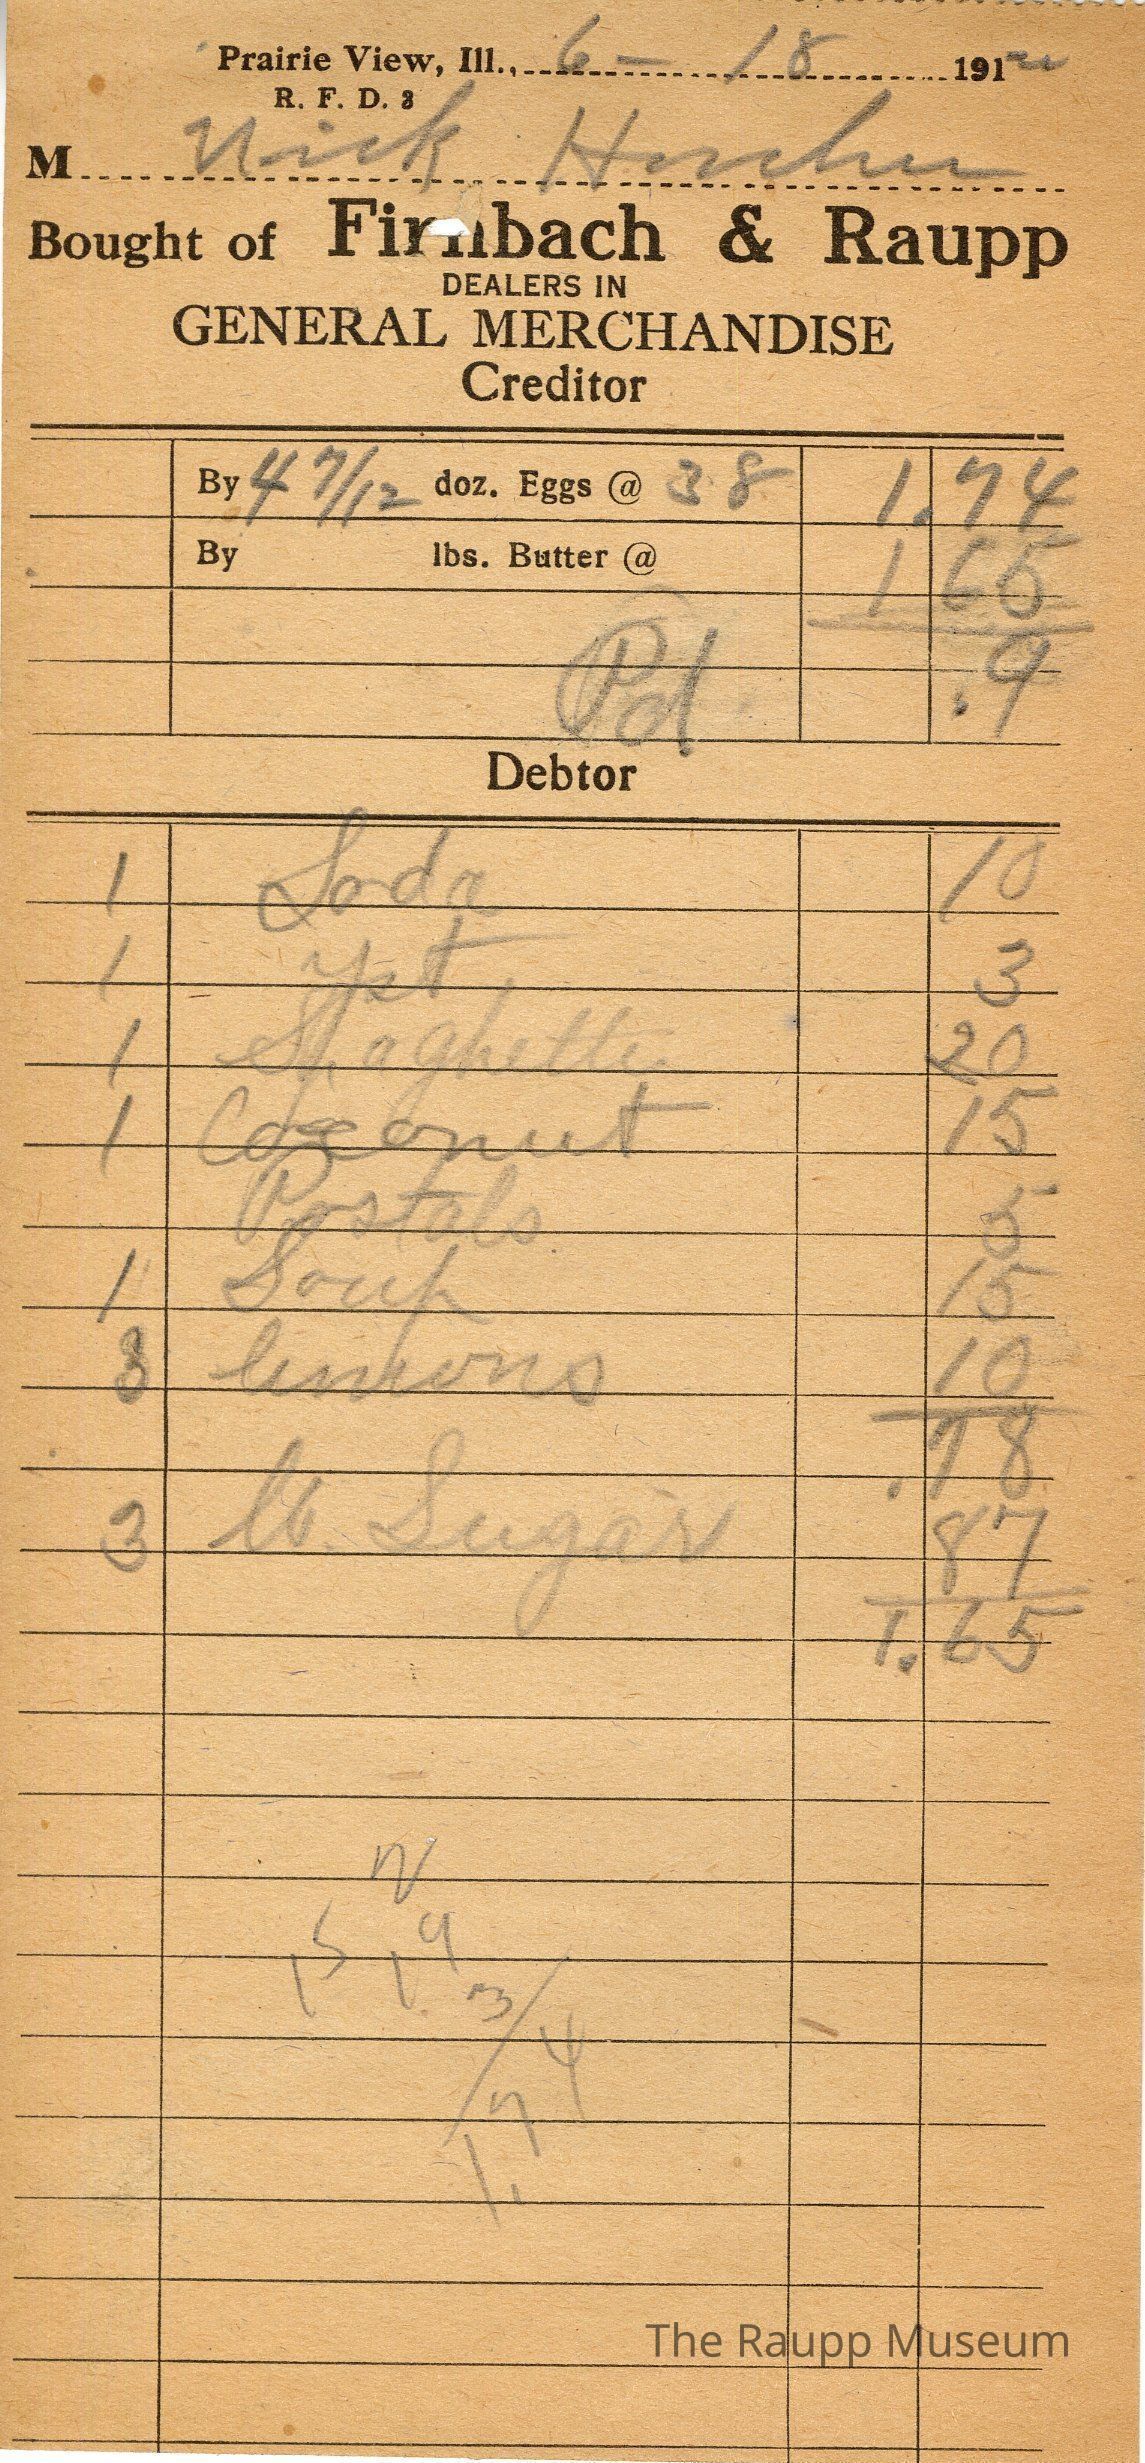 Prairie View, Ill., 6 - 18 191
R. F. D. 3
M Nick Horcher
Bought of Firnbach & Raupp
DEALERS IN
GENERAL MERCHANDISE
Creditor
By 4 7/12 doz. Eggs @ 38 1.74
By lbs. Butter @ 1 65
Pd .9
Debtor
1 Soda 10
1 Yst 3
1 Spaghetti 20
1 Cocoanut 15
Postals 5
1 Soup 15
3 lemons 10
.78
3 lb. Sugar 87
1.65
1.74
The Raupp Museum